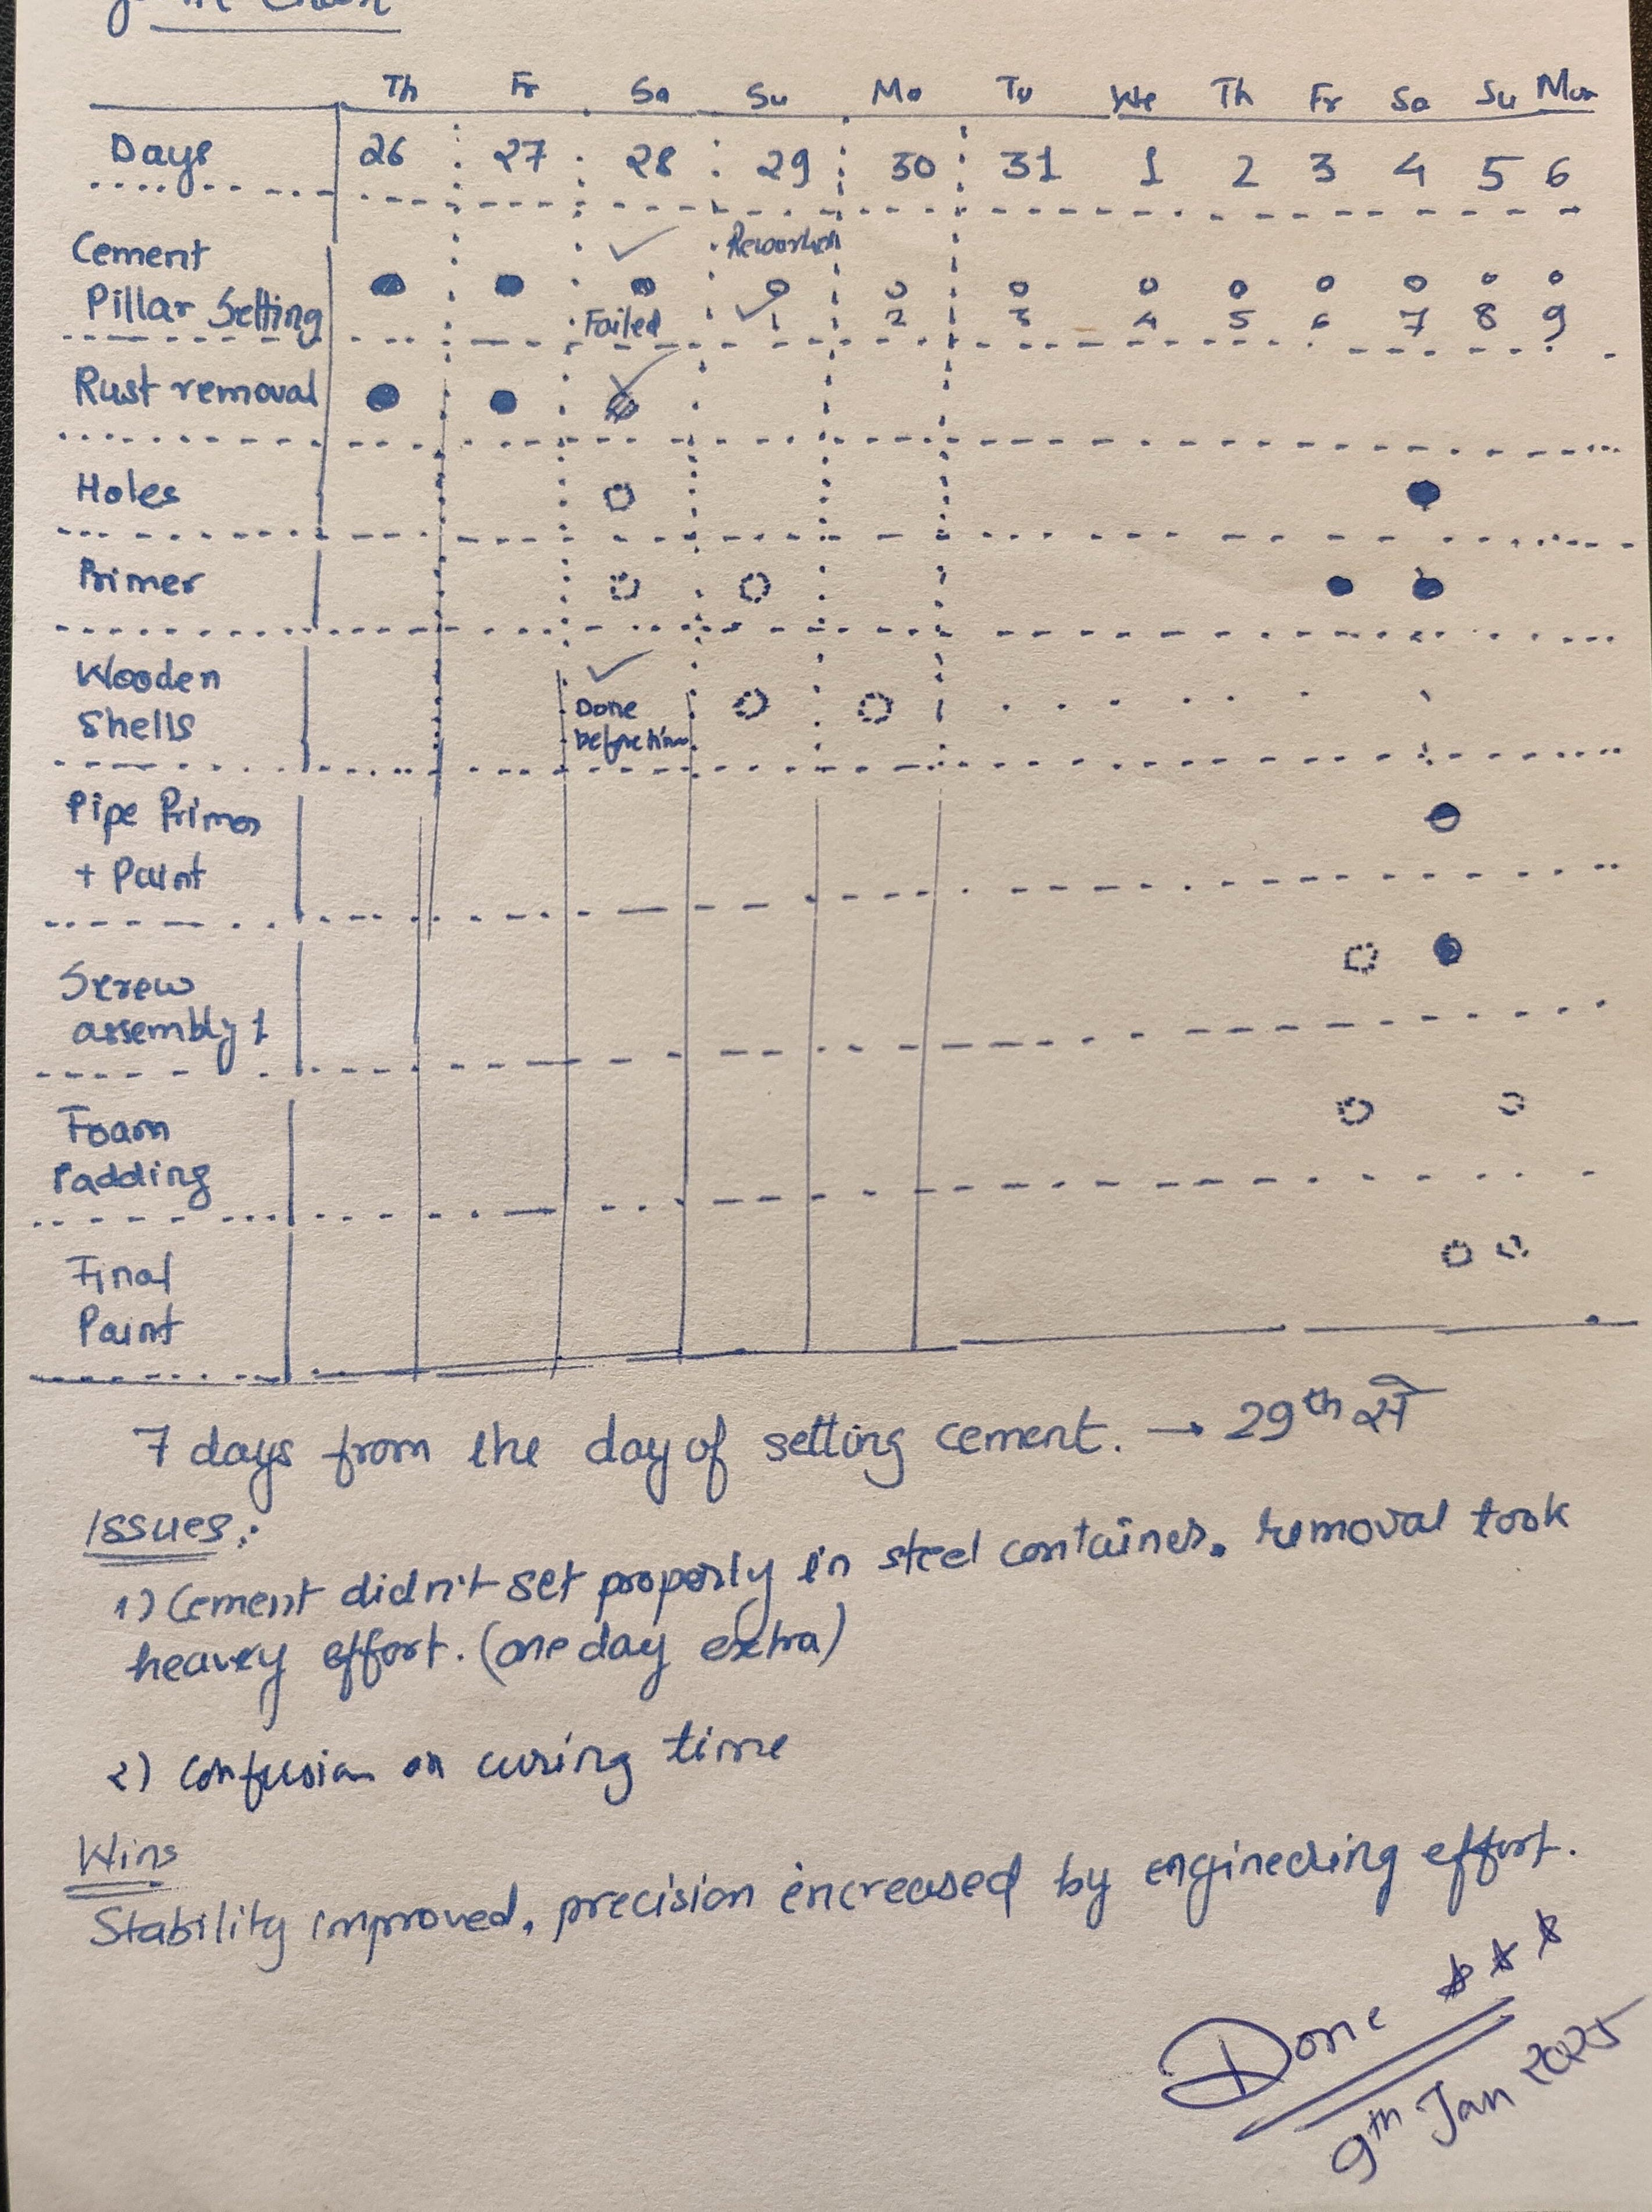 Th Fr Sa Su Mo Tu We Th Fr Sa Su Mon
Days 26 27 28 29 30 31 1 2 3 4 5 6
Cement Reworked
Pillar Setting Failed 1 2 3 4 5 6 7 8 9
Rust removal
Holes
Primer
Wooden
Shells Done
before time
Pipe Primer
+ Paint
Screw
assembly 1
Foam
Padding
Final
Paint
7 days from the day of setting cement. → 29th से
Issues:
1) Cement didn't set properly in steel container. removal took
heavy effort. (one day extra)
2) Confusion on curing time
Wins
Stability improved, precision increased by engineering effort.
Done
9th Jan 2025